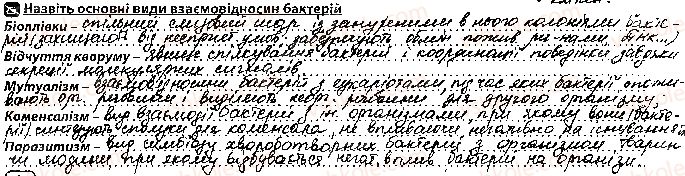 Назвіть основні види взаємовідносин бактерій
Біоплівки – спільний слизовий шар із зануреними в нього колоніями бакте-
рій (захищають від несприят. умов, забезпечують обмін пожив. ре-нами,
Відчуття кворуму – явище спілкування бактерій і координації поведінки завдяки
секреції молекулярних сигналів.
Мутуалізм – взаємовідносини бактерій з еукаріотами, під час яких бактерії спожи-
вають орг. речовини і виділяють неорг. речовини для другого організму.
Коменсалізм – вид взаємодії бактерій з ін. організмами, при якому вони (бакте-
рії) синтезують сполуки для коменсала, не впливаючи негативно на існування
Паразитизм – вид симбіозу хвороботворних бактерій з організмом тварин
чи людини, при якому відбувається негат. вплив бактерій на організм.